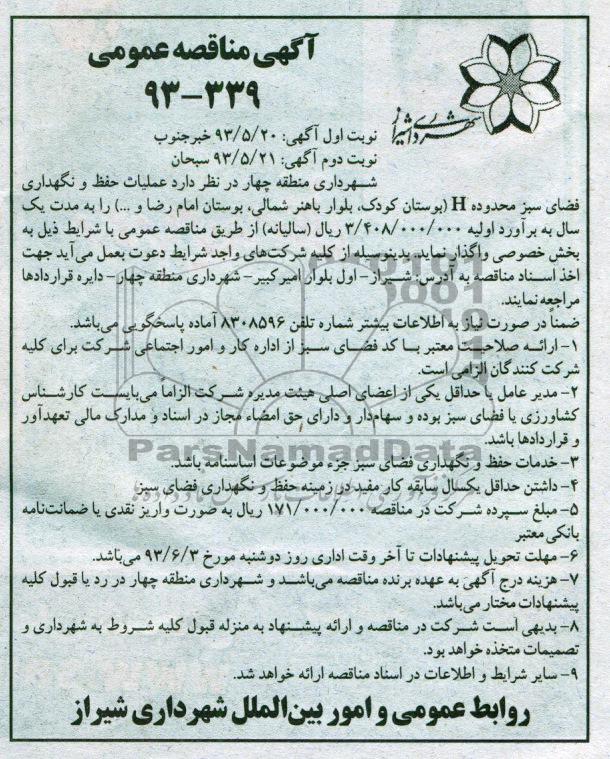 آگهی مناقصه عمومی
۹۳-۳۳۹
شهرداری شیراز
نوبت اول آگهی: ۹۳/۵/۲۰ خبرجنوب
نوبت دوم آگهی: ۹۳/۵/۲۱ سبحان
شهرداری منطقه چهار در نظر دارد عملیات حفظ و نگهداری
فضای سبز محدوده H (بوستان کودک، بلوار باهنر شمالی، بوستان امام رضا و ...) را به مدت یک
سال به برآورد اولیه ۳/۴۰۸/۰۰۰/۰۰۰ ریال (سالیانه) از طریق مناقصه عمومی با شرایط ذیل به
بخش خصوصی واگذار نماید. بدینوسیله از کلیه شرکت‌های واجد شرایط دعوت بعمل می‌آید جهت
اخذ اسناد مناقصه به آدرس: شیراز- اول بلوار امیرکبیر- شهرداری منطقه چهار- دایره قراردادها
مراجعه نمایند.
ضمناً در صورت نیاز به اطلاعات بیشتر شماره تلفن ۸۳۰۸۵۹۶ آماده پاسخگویی می‌باشد.
۱- ارائه صلاحیت معتبر با کد فضای سبز از اداره کار و امور اجتماعی شرکت برای کلیه
شرکت کنندگان الزامی است.
۲- مدیر عامل یا حداقل یکی از اعضای اصلی هیئت مدیره شرکت الزاماً می‌بایست کارشناس
کشاورزی یا فضای سبز بوده و سهام‌دار و دارای حق امضاء مجاز در اسناد و مدارک مالی تعهدآور
و قراردادها باشد.
۳- خدمات حفظ و نگهداری فضای سبز جزء موضوعات اساسنامه باشد.
۴- داشتن حداقل یکسال سابقه کار مفید در زمینه حفظ و نگهداری فضای سبز
۵- مبلغ سپرده شرکت در مناقصه ۱۷۱/۰۰۰/۰۰۰ ریال به صورت واریز نقدی یا ضمانت‌نامه
بانکی معتبر
۶- مهلت تحویل پیشنهادات تا آخر وقت اداری روز دوشنبه مورخ ۹۳/۶/۳ می‌باشد.
۷- هزینه درج آگهی به عهده برنده مناقصه می‌باشد و شهرداری منطقه چهار در رد یا قبول کلیه
پیشنهادات مختار می‌باشد.
۸- بدیهی است شرکت در مناقصه و ارائه پیشنهاد به منزله قبول کلیه شروط به شهرداری و
تصمیمات متخذه خواهد بود.
۹- سایر شرایط و اطلاعات در اسناد مناقصه ارائه خواهد شد.
روابط عمومی و امور بین‌الملل شهرداری شیراز
ParsNamadData